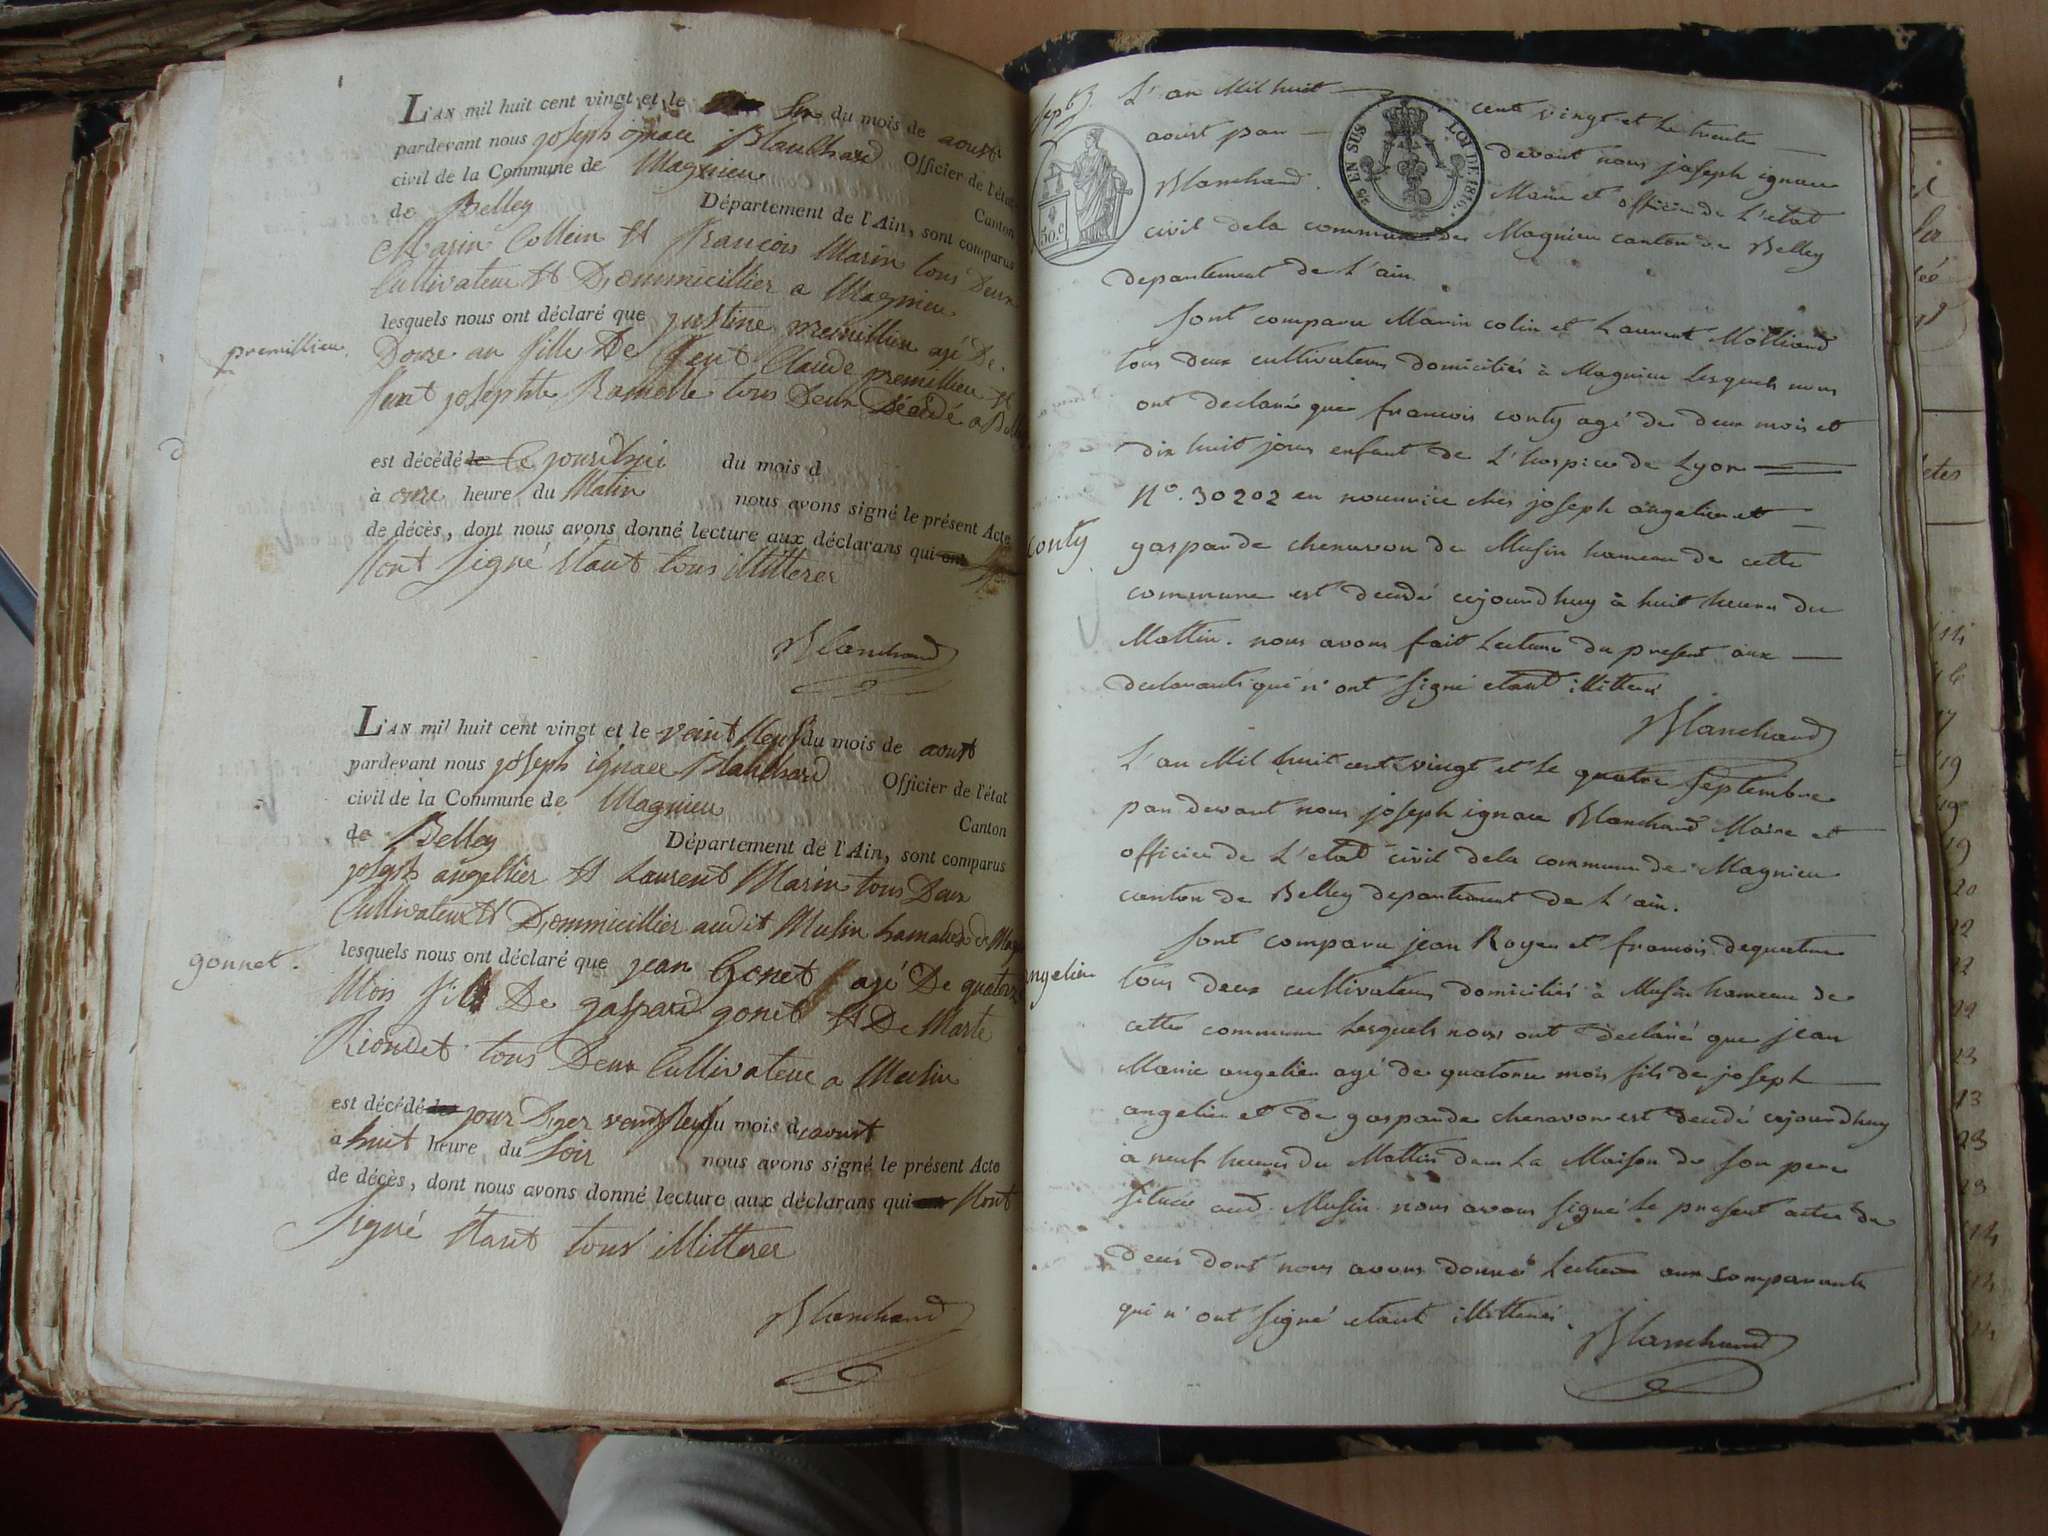 L'AN mil huit cent vingt et le six du mois de aoust
pardevant nous joseph ignace Blanchard Officier de l'état
civil de la Commune de Magnieu Canton
de Belley Département de l'Ain, sont comparus
Marin Collein et François Marin tous Deux
Cultivateur et Dommicillier a Magnieu
lesquels nous ont déclaré que justine premillieu agé De
premillieu.
Douze an fille De feut Claude premillieu et
feut josephte Ramelle tous Deux Décédé a
est décédé le Ce jourdhui du mois d
à onze heure du Matin nous avons signé le présent Acte
de décès, dont nous avons donné lecture aux déclarans qui ont
Nont Signé Etant tous illitterer
Blanchard
L'AN mil huit cent vingt et le vaint Neuf du mois de aoust
pardevant nous joseph ignace Blanchard Officier de l'état
civil de la Commune de Magnieu Canton
de Belley Département de l'Ain, sont comparus
joseph angellier et Laurent Marin tous Deux
Cultivateur et Dommicillier audit Musin hamaued de
lesquels nous ont déclaré que jean Gonet agé De quatorze
gonnet.
Mois fils De gaspard gonet et De Marte
Riondet tous Deux Cultivateur a Musin
est décédé jour Dyer vaint Neuf du mois d aoust
à huit heure du Soir nous avons signé le présent Acte
de décès, dont nous avons donné lecture aux déclarans qui Nont
Signé Etant tous illitterer
Blanchard
L'an Mil huit cent vingt et le trente
aoust par devant nous joseph ignace
Blanchard Maire et officier de L'etat
45 EN SUS LOI DE 1816.
50.c
civil dela commune de Magnieu canton de Belley
departement de L'ain
Sont comparu Marin colin et Laurent Molliand
tous deux cultivateurs domiciliés à Magnieu Lesquels nous
ont declaré que francois conty agé de deux mois et
dix huit jours enfant de L'hospice de Lyon
N°. 30202 en nourrice ches joseph angelier et
conty
gasparde chenavon de Musin hameau de cette
commune est decedé cejourdhuy à huit heures du
Mattin. nous avons fait Lecture du present aux
declarants qui n'ont signé etant illitteré
Blanchard
L'an Mil huit cent vingt et le quatre septembre
par devant nous joseph ignace Blanchard Maire et
officier de L'etat civil dela commune de Magnieu
canton de Belley departement de L'ain.
Sont comparu jean Royer et francois dequatre
angelier
tous deux cultivateurs domiciliés à Musin hameau de
cette commune Lesquels nous ont declaré que jean
Marie angelier agé de quatorze mois fils de joseph
angelier et de gasparde chenavon est decedé cejourdhuy
à neuf heures du Mattin dans La Maison de son pere
située aud. Musin. nous avons signé le present acte de
deces dont nous avons donné Lecture aux comparants
qui n'ont signé etant illitterés.
Blanchard